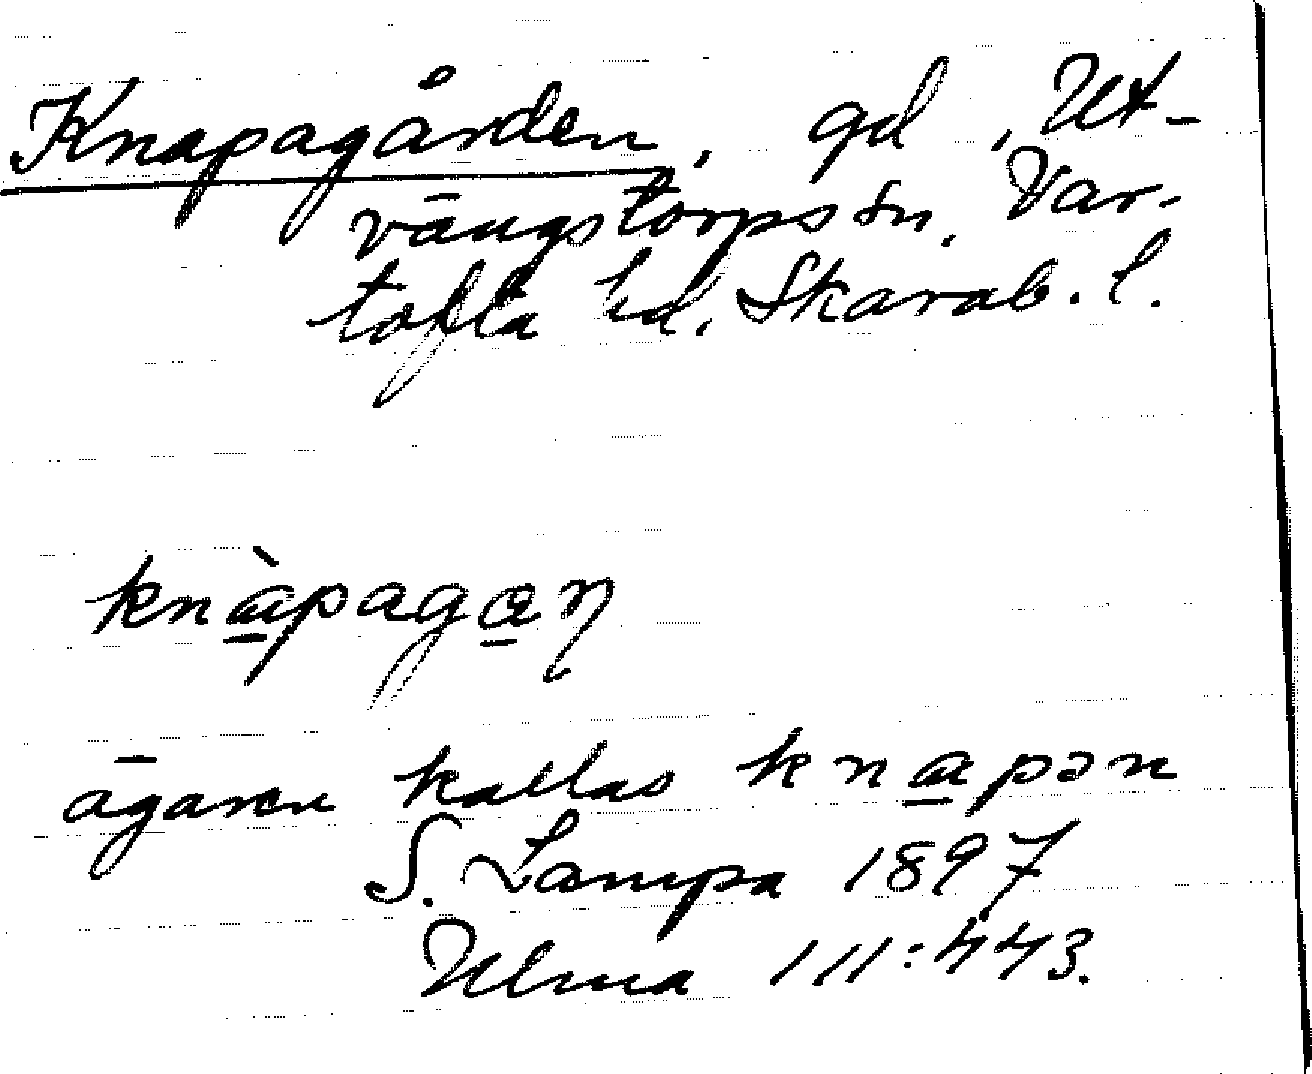 Knapagården, gd, Ut-
vängstorps sn, Var-
tofta hd, Skarab. l.
knàpagan
ägaren kallas knapən
S. Lampa 1897
Ulma 111:443.